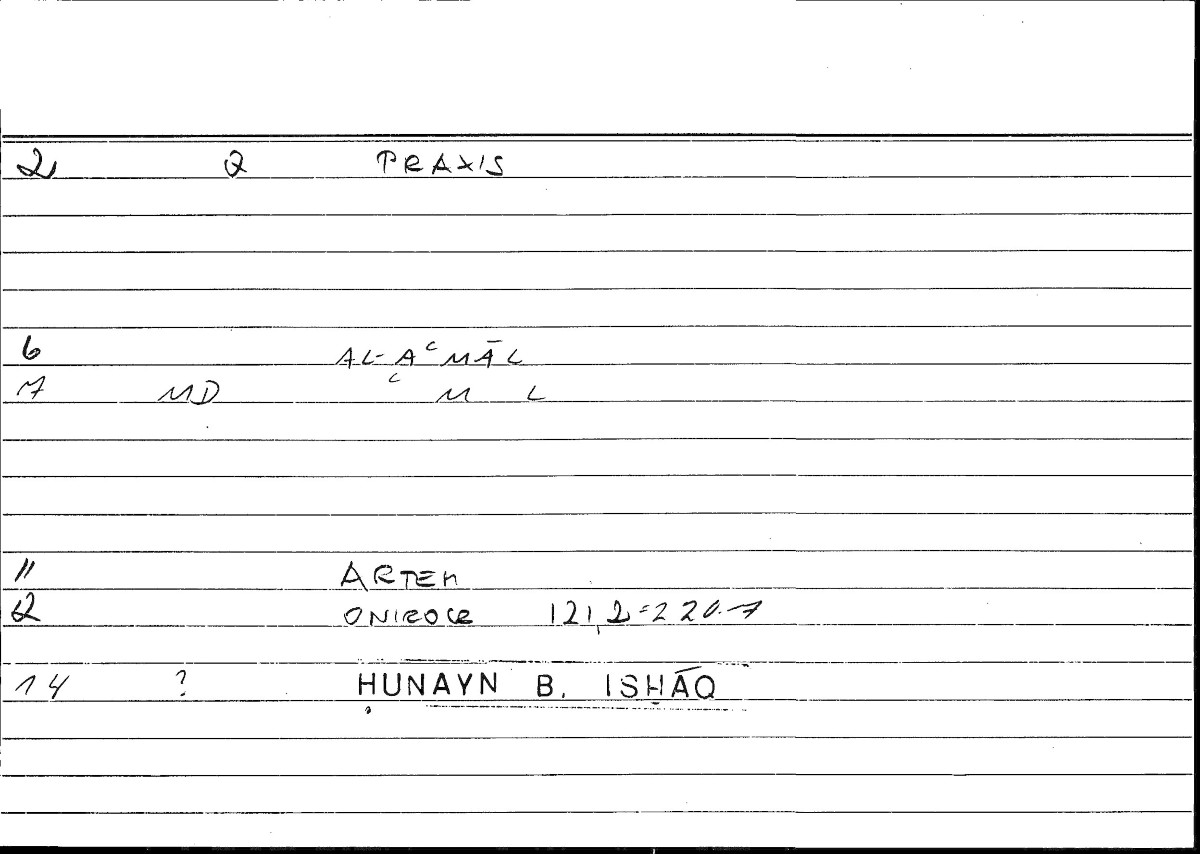 2 Q PRAXIS
6 AL-AʿMĀL
7 MD ʿ M L
11 ARTEM
12 ONIROCR 121,2=220.7
14 ? ḤUNAYN B. ISḤĀQ